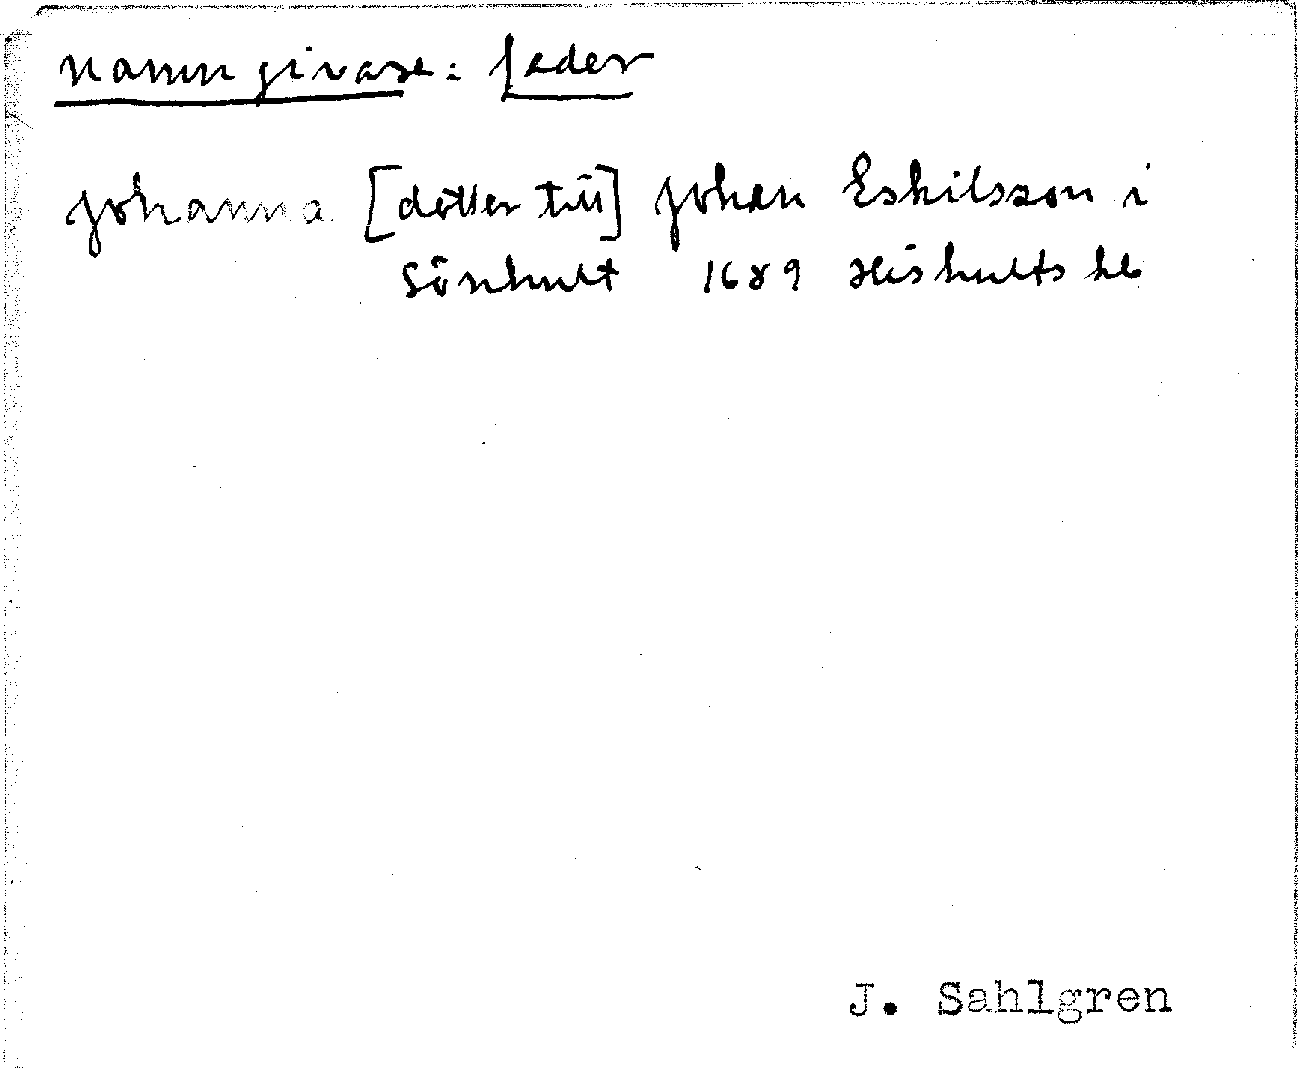 Namngivare: fader
Johanna [dotter till] Johan Eskilsson i
Sönhult 1689 Hishults kb
J. Sahlgren